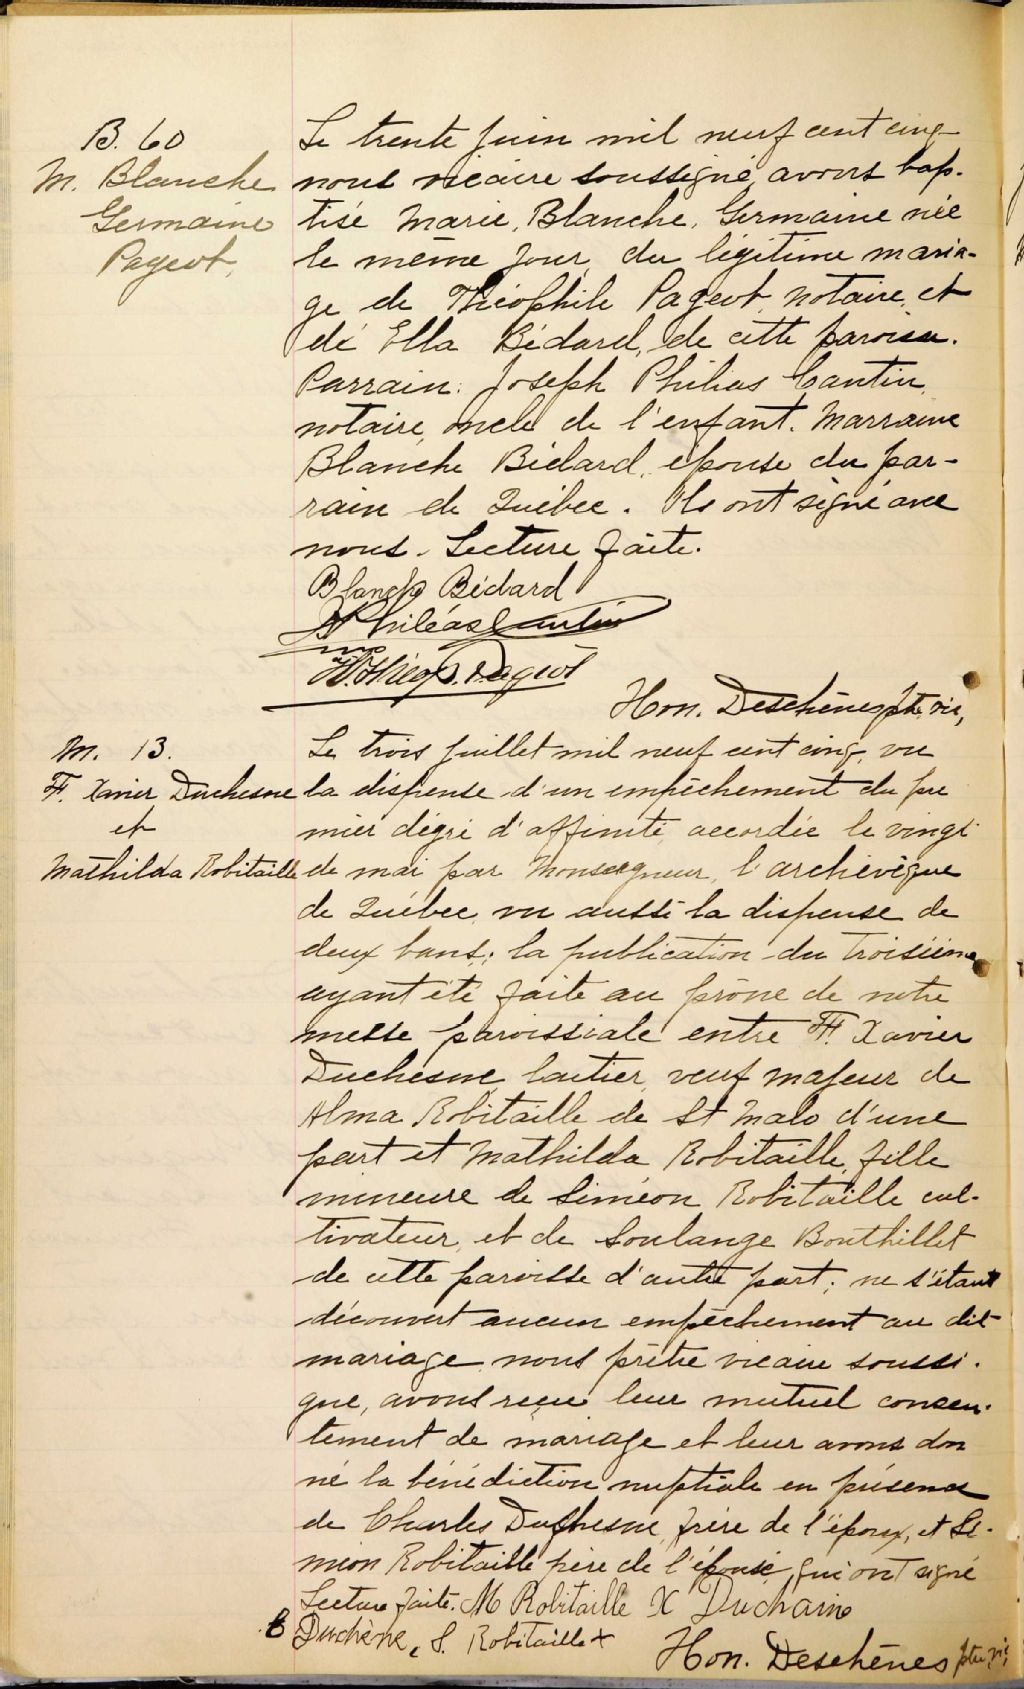 B. 60
M. Blanche
Germaine
Pageot,
Le trente juin mil neuf cent cinq
nous vicaire soussigné, avons bap-
tisé Marie, Blanche, Germaine née
le même jour, du légitime maria-
ge de Théophile Pageot, notaire, et
de Ella Bédard, de cette paroisse.
Parrain: Joseph Philias Cantin,
notaire, oncle de l'enfant. Marraine
Blanche Bédard, épouse du par-
rain de Québec. Ils ont signé avec
nous. Lecture faite.
Blanche Bédard
J Philéas Cantin
Théop. Pageot
Hon. Deschênes ptr. vic,
M. 13.
F. Xavier Duchesne
et
Mathilda Robitaille
Le trois juillet mil neuf cent cinq, vu
la dispense d'un empêchement du pre
mier dégré d'affinité, accordée le vingt
de mai par Monseigneur, l'archevêque
de Québec, vu aussi la dispense de
deux bans; la publication du troisième
ayant été faite au prône de notre
messe paroissiale entre F. Xavier
Duchesne, laitier, veuf majeur de
Alma Robitaille de St Malo d'une
part et Mathilda Robitaille, fille
mineure de Siméon Robitaille cul-
tivateur, et de Soulange Bouthillet
de cette paroisse d'autre part; ne s'étant
découvert aucun empêchement au dit
mariage, nous prêtre vicaire soussi-
gné, avons reçu leur mutuel consen-
tement de mariage et leur avons don
né la bénédiction nuptiale en présence
de Charles Duchesne, frère de l'époux, et Si-
méon Robitaille père de l'épouse, qui ont signé
Lecture faite. M Robitaille X Ducharne
C Duchène, S. Robitaille +
Hon. Deschênes ptr. vic,